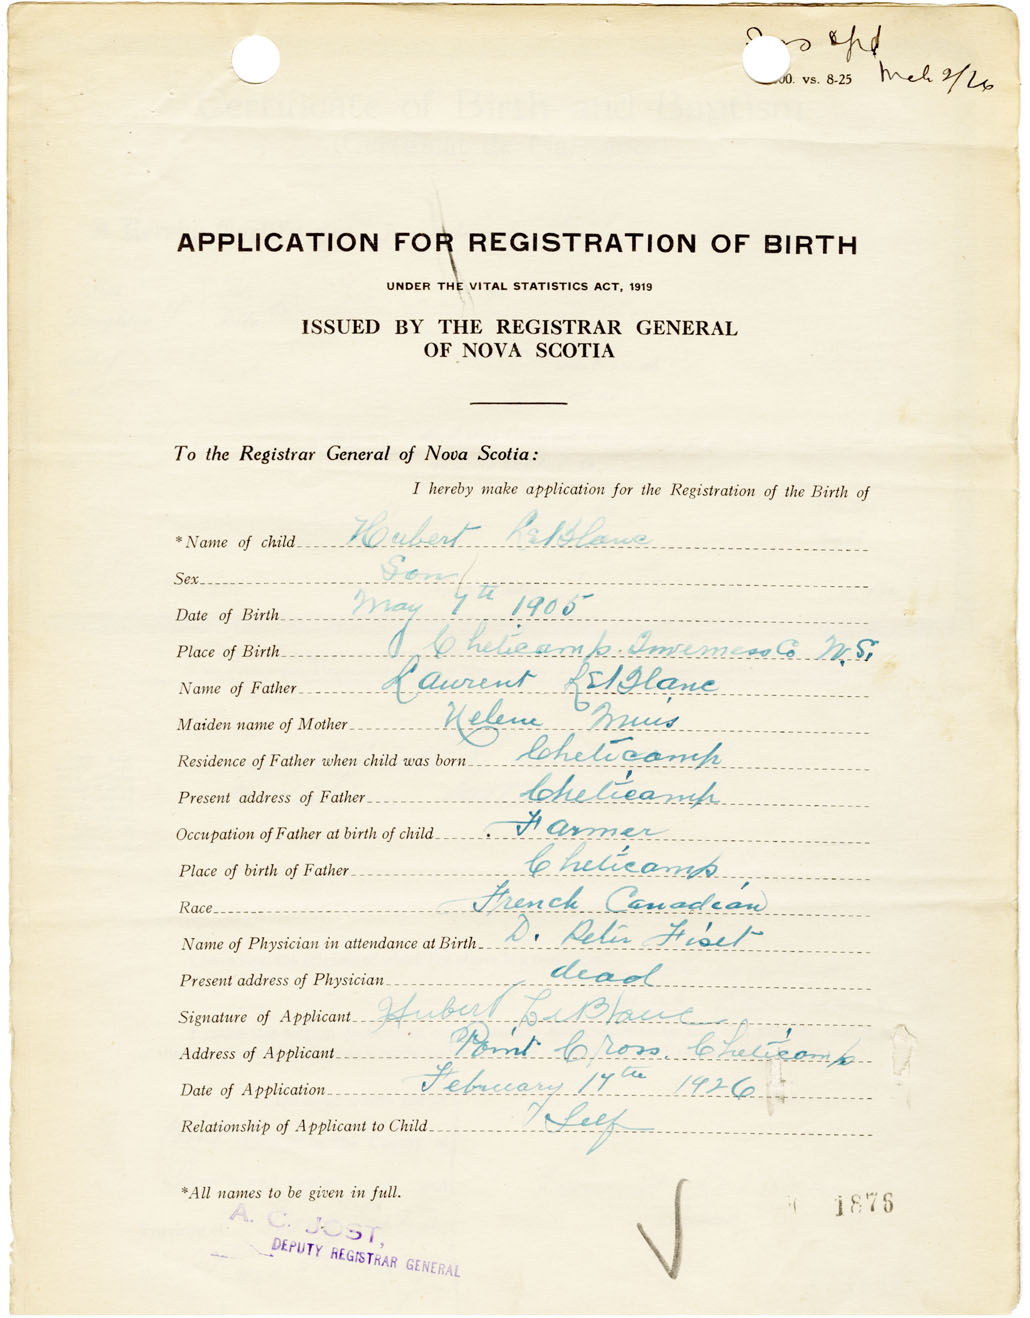 apd
00. vs. 8-25 Mch 2/26
APPLICATION FOR REGISTRATION OF BIRTH
UNDER THE VITAL STATISTICS ACT, 1919
ISSUED BY THE REGISTRAR GENERAL
OF NOVA SCOTIA
To the Registrar General of Nova Scotia:
I hereby make application for the Registration of the Birth of
*Name of child Hubert LeBlanc
Sex Son
Date of Birth May 7th 1905
Place of Birth Cheticamp Inverness Co N.S.
Name of Father Laurent LeBlanc
Maiden name of Mother Helene Muis
Residence of Father when child was born Cheticamp
Present address of Father Cheticamp
Occupation of Father at birth of child Farmer
Place of birth of Father Cheticamp
Race French Canadian
Name of Physician in attendance at Birth D. Peter Fiset
Present address of Physician dead
Signature of Applicant Hubert LeBlanc
Address of Applicant Point Cross. Cheticamp
Date of Application February 17th 1926
Relationship of Applicant to Child Self
*All names to be given in full.
1876
A. C. JOST,
DEPUTY REGISTRAR GENERAL